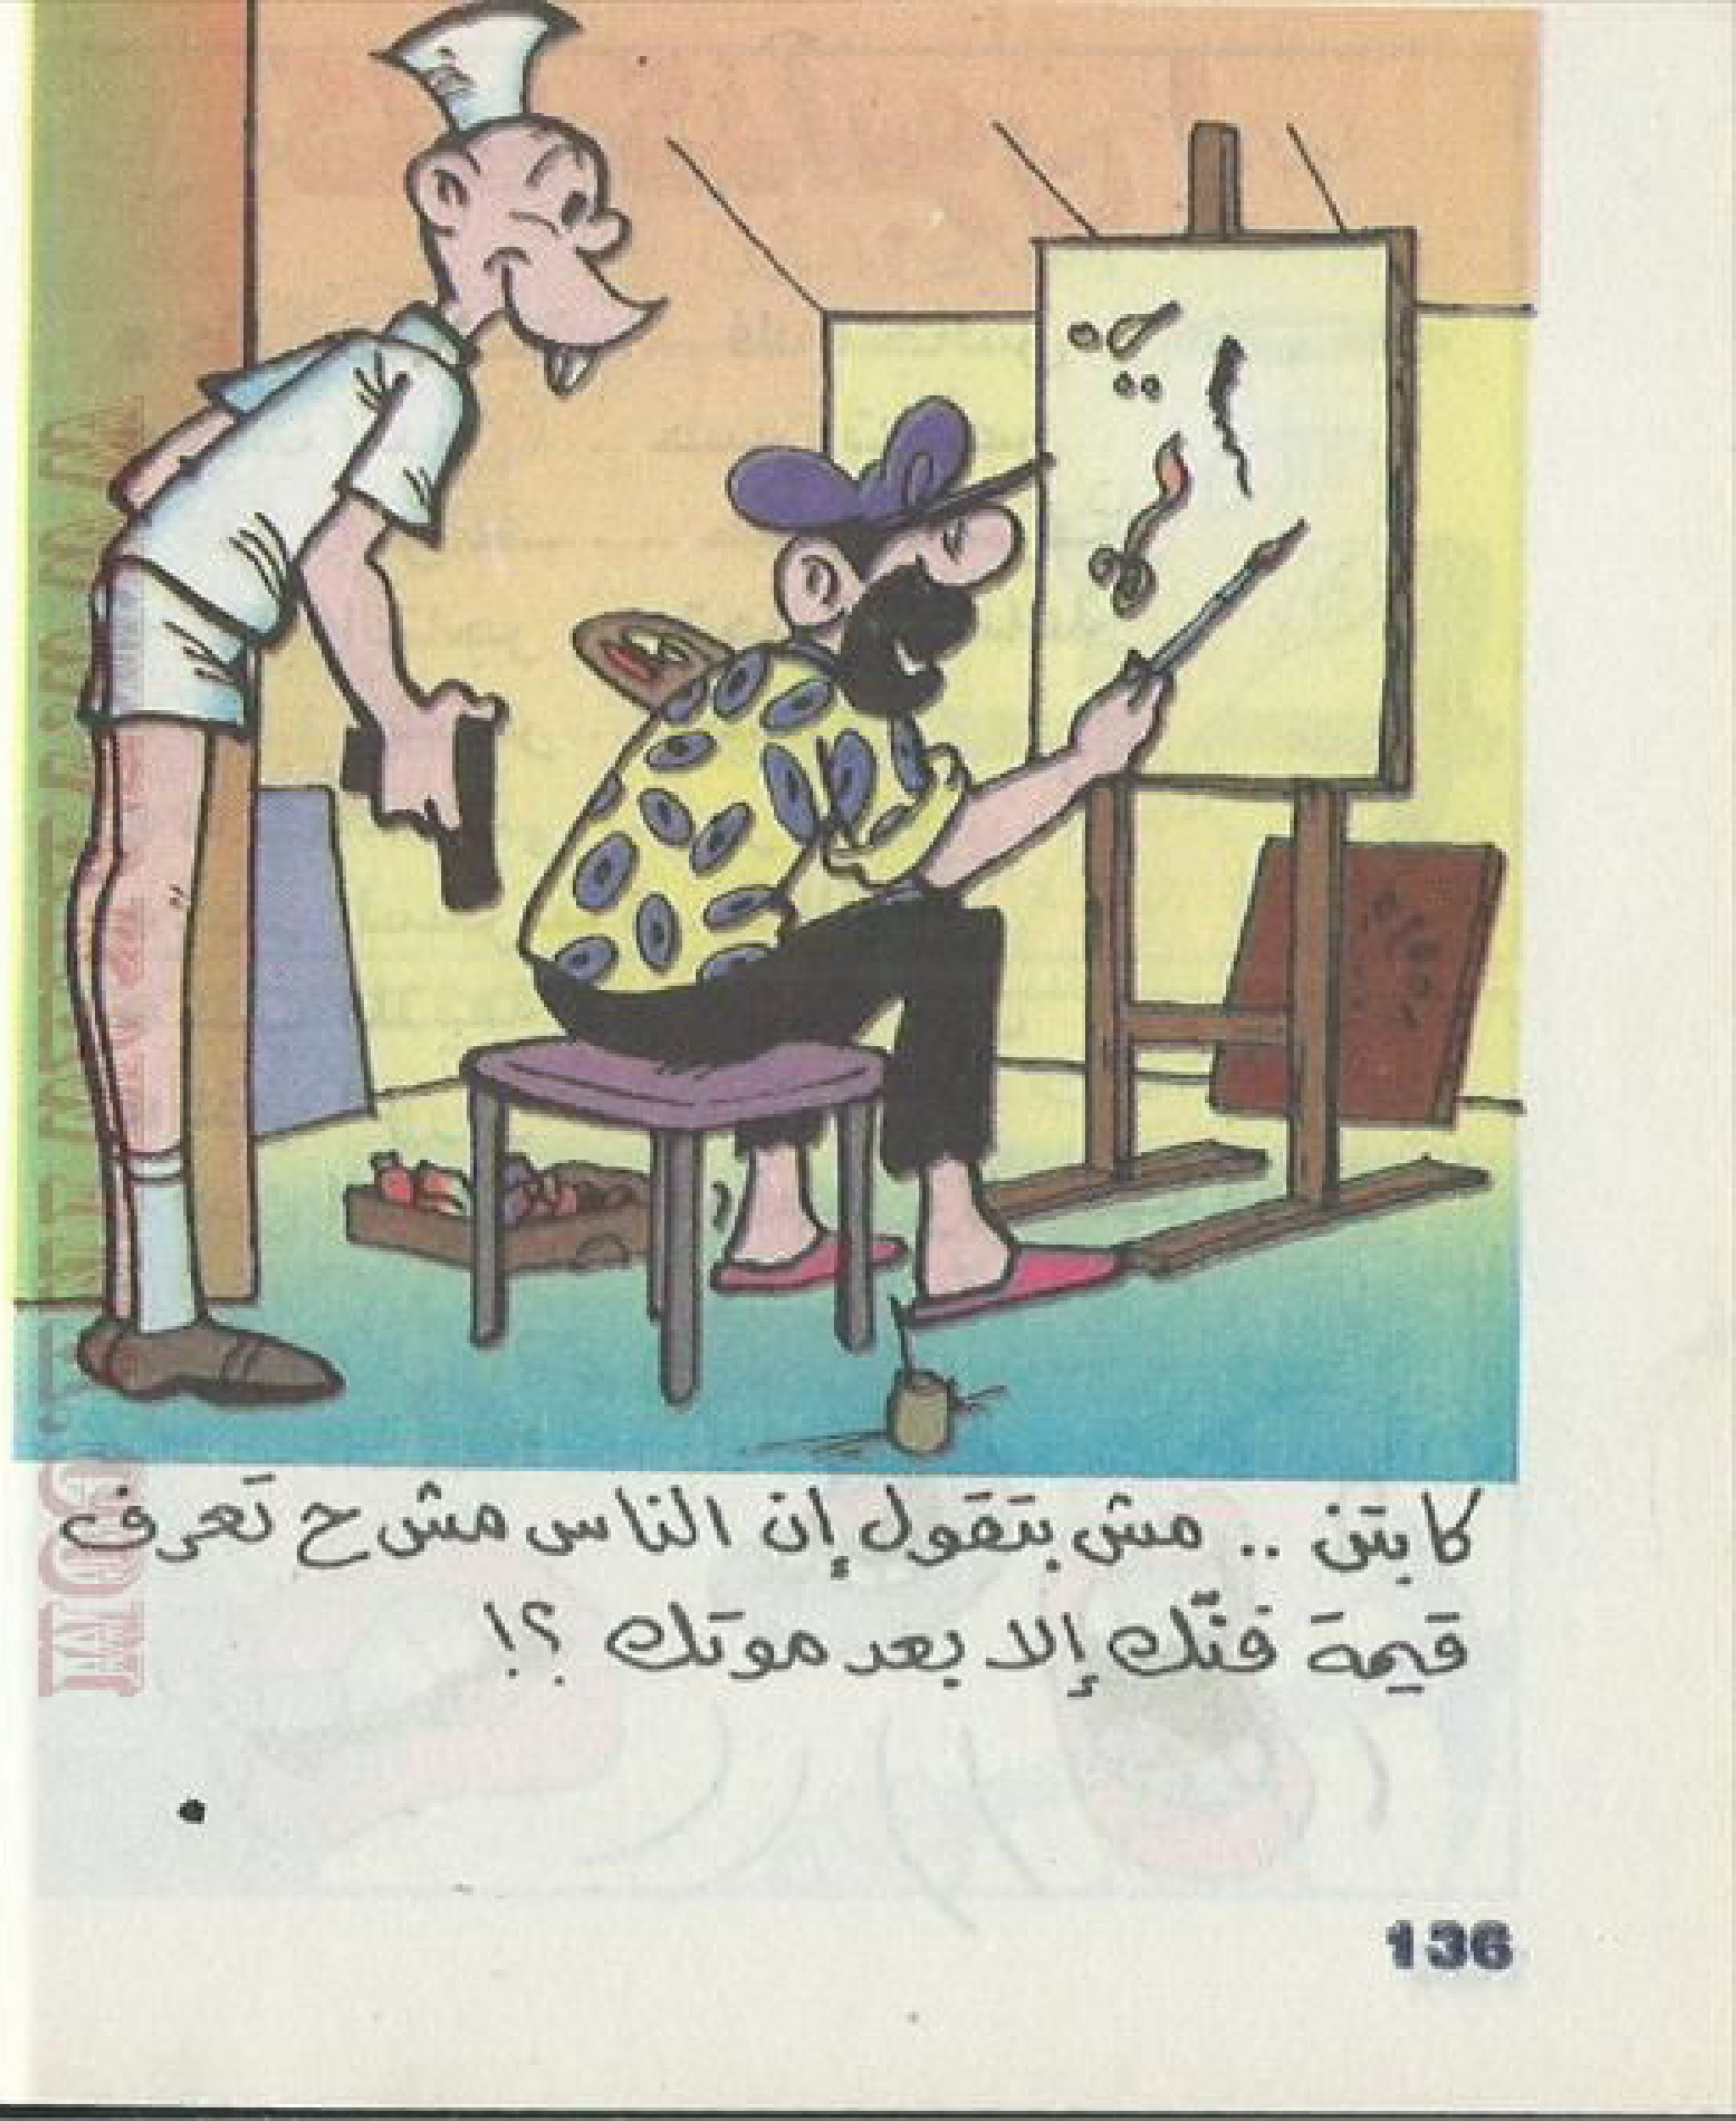 كابتن .. مش بتقول إن الناس مش ح تعرف
قيمة فنّك إلا بعد موتك ؟!
136